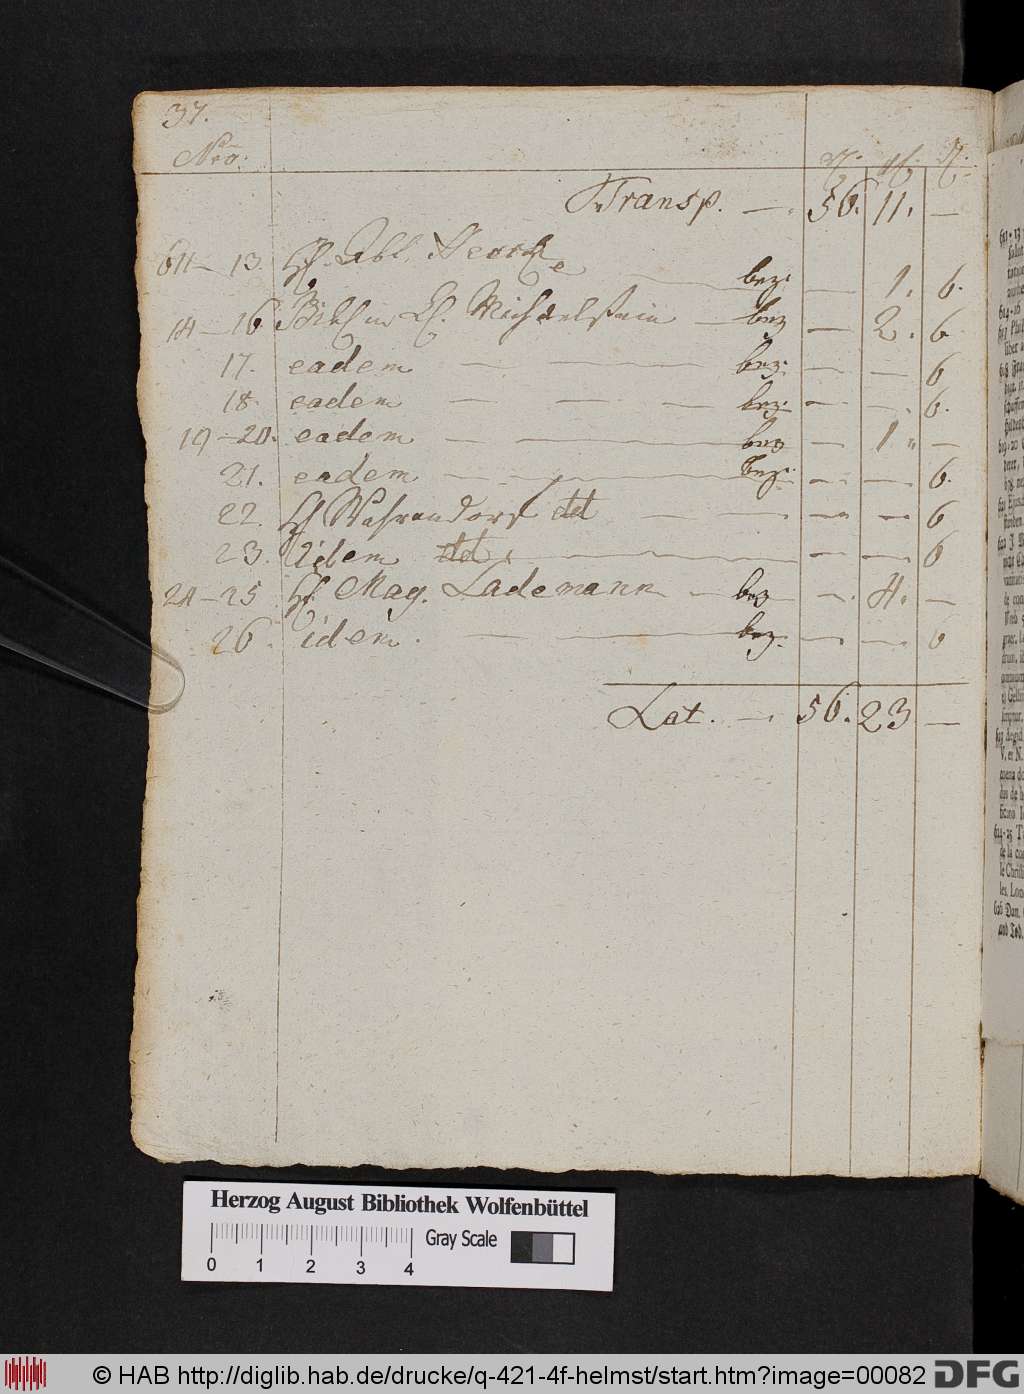 37.
Nro.
Transp. — 56. 11. —
611–13. H. Abt. — bez. — 1. 6.
14–16 Bibl. in Cl. Michaelstein — bez — 2. 6.
17. eadem — — — bez. — — 6
18. eadem — — — bez. — — 6.
19–20. eadem — — bez — 1 „ —
21. eadem — — bez. — — 6.
22. H Wahrendorf dd — — — — 6
23. idem dd. — — — — 6
24–25 H. Mag. Lademann — bez — 4. —
26. idem. — — bez. — — 6
Lat. — 56. 23 —
Herzog August Bibliothek Wolfenbüttel
Gray Scale
0 1 2 3 4
© HAB http://diglib.hab.de/drucke/q-421-4f-helmst/start.htm?image=00082 DFG